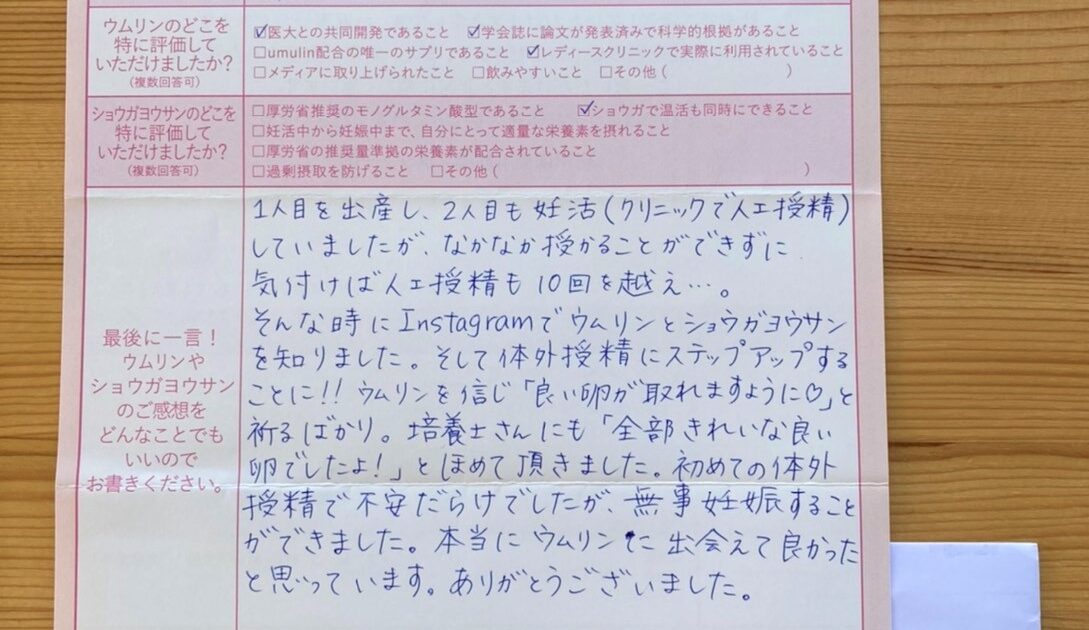 ウムリンのどこを
特に評価して
いただけましたか?
(複数回答可)
☑医大との共同開発であること ☑学会誌に論文が発表済みで科学的根拠があること
☐umulin配合の唯一のサプリであること ☑レディースクリニックで実際に利用されていること
☐メディアに取り上げられたこと ☐飲みやすいこと ☐その他 ( )
ショウガヨウサンのどこを
特に評価して
いただけましたか?
(複数回答可)
☐厚労省推奨のモノグルタミン酸型であること ☑ショウガで温活も同時にできること
☐妊活中から妊娠中まで、自分にとって適量な栄養素を摂れること
☐厚労省の推奨量準拠の栄養素が配合されていること
☐過剰摂取を防げること ☐その他 ( )
最後に一言!
ウムリンや
ショウガヨウサン
のご感想を
どんなことでも
いいので
お書きください。
1人目を出産し、2人目も妊活(クリニックで人工授精)
していましたが、なかなか授かることができずに
気付けば人工授精も10回を越え…。
そんな時にInstagramでウムリンとショウガヨウサン
を知りました。そして体外授精にステップアップする
ことに!! ウムリンを信じ「良い卵が取れますように♡」と
祈るばかり。培養士さんにも「全部きれいな良い
卵でしたよ!」とほめて頂きました。初めての体外
授精で不安だらけでしたが、無事妊娠すること
ができました。本当にウムリンに出会えて良かった
と思っています。ありがとうございました。